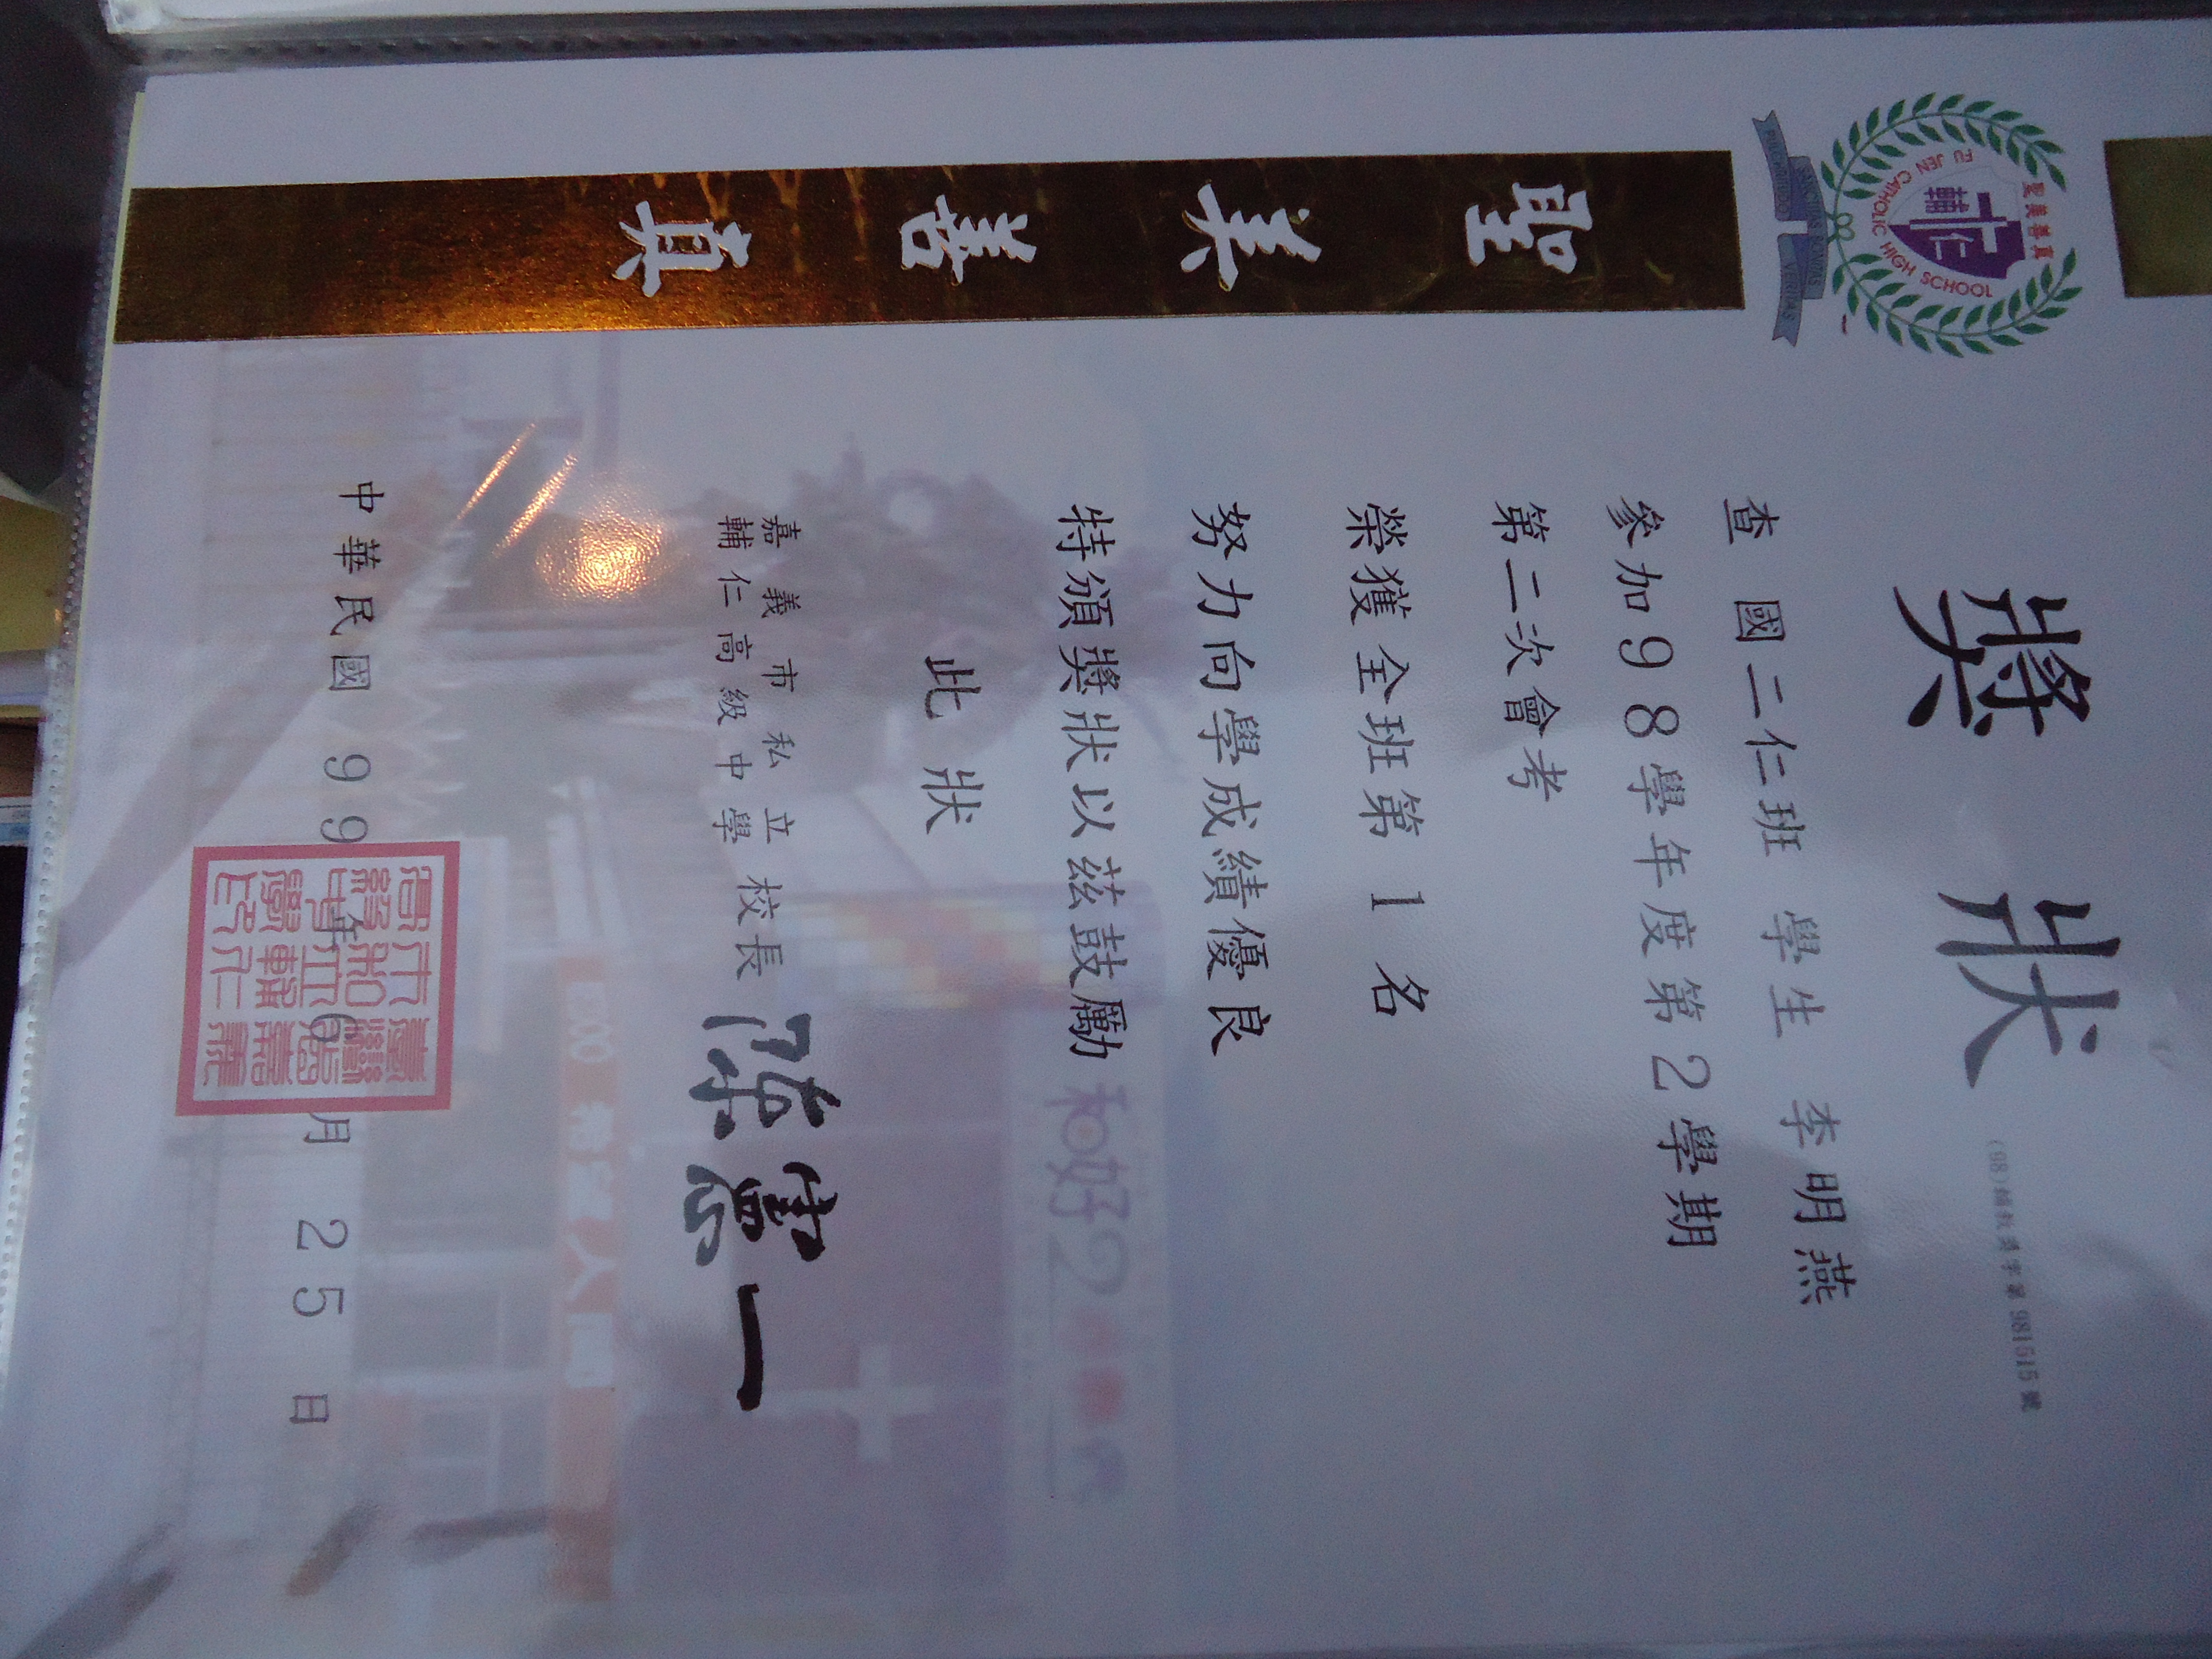 聖美善真
FU JEN CATHOLIC HIGH SCHOOL
輔仁
聖 美 善 真
獎狀
查 國二仁班 學生 李明燕
參加98學年度第2學期
第二次會考
榮獲全班第 1 名
努力向學成績優良
特頒獎狀以茲鼓勵
此狀
嘉義市私立
輔仁高級中學
校長 陳憲一
中華民國 99 年 6 月 25 日